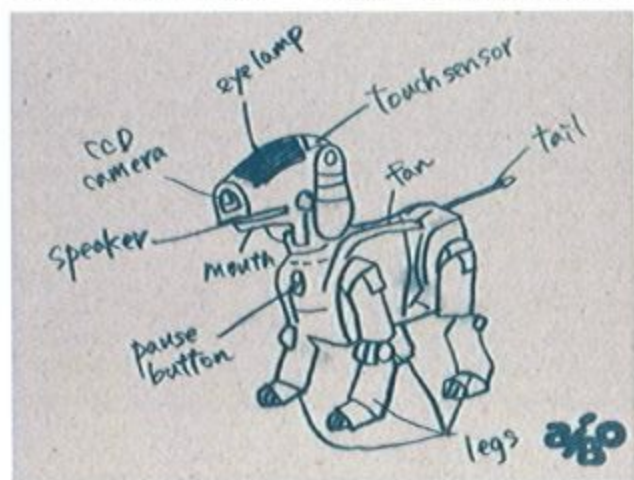 eye lamp
touch sensor
CCD
camera
fan
tail
speaker
mouth
pause
button
legs
aibo